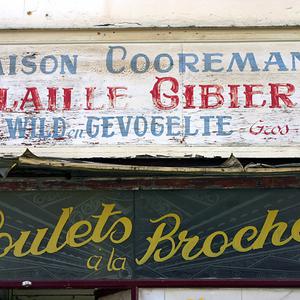 AISON COOREMAN
LAILLE GIBIER
WILD en GEVOGELTE - Gros
Poulets
à la Broche